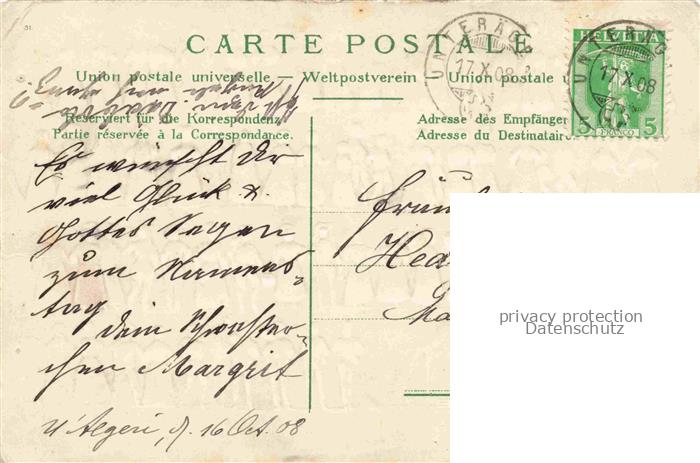 31.
CARTE POSTALE
Union postale universelle. — Weltpostverein — Union postale
Reserviert für die Korrespondenz
Partie réservée à la Correspondance.
Adresse des Empfänger
Adresse du Destinatair
HELVETIA
5 FRANCO 5
UNTERÄG
17.X.08
UNTERÄG
17.X.08
Es wünscht Dir
viel Glück &
Gottes Segen
zum Namens-
tag
dein Schwester-
chen Margrit
U'Aegeri, d. 16 Oct. 08
Fräul
Hed
privacy protection
Datenschutz